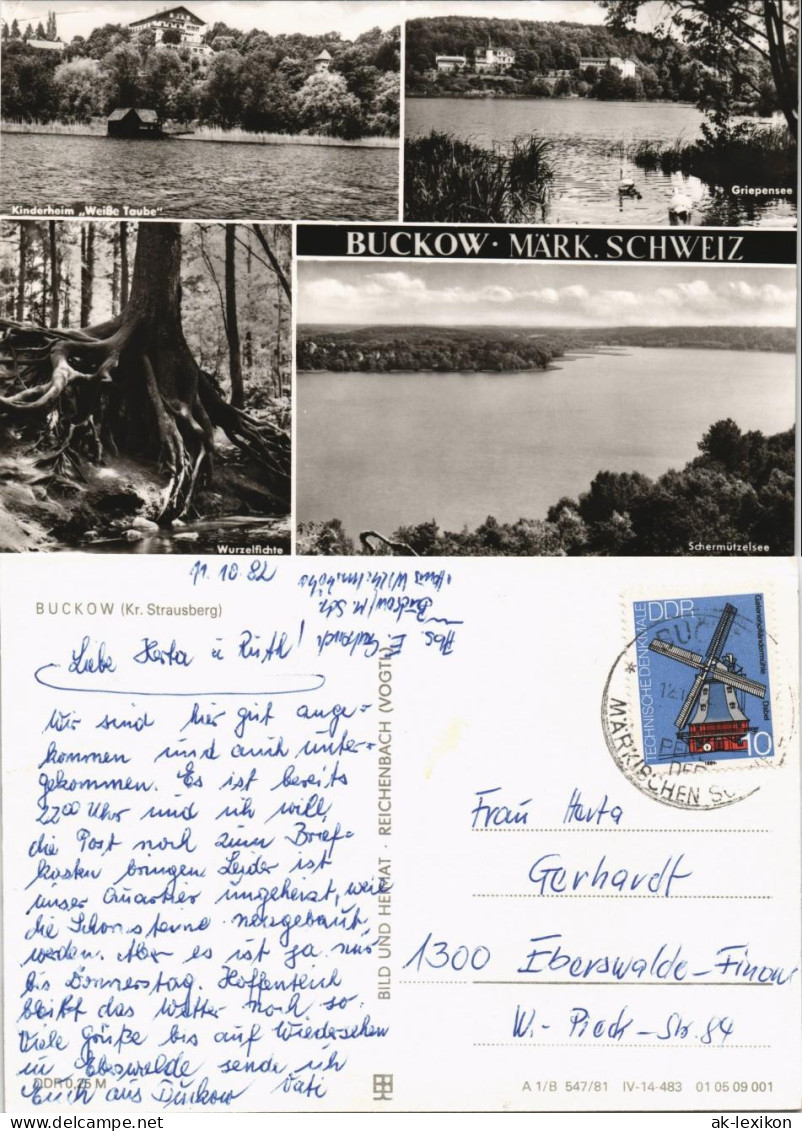 Kinderheim „Weiße Taube"
Griepensee
BUCKOW · MÄRK. SCHWEIZ
Wurzelfichte
Schermützelsee
11.10.82
BUCKOW (Kr. Strausberg)
Abs. E.
Buckow/M Sch.
Haus Wilhelmshöhe
Liebe Herta u Ruth!
Wir sind hier gut ange-
kommen und auch unter-
gekommen. Es ist bereits
22⁰⁰ Uhr und ich will
die Post noch zum Brief-
kasten bringen. Leider ist
unser Quartier ungeheizt, weil
die Schornsteine neu gebaut
werden. Aber es ist ja nur
bis Donnerstag. Hoffentlich
bleibt das Wetter noch so.
Viele Grüße bis auf Wiedersehen
in Eberswalde sende ich
Euch aus Buckow Vati
DDR 0,25 M
BILD UND HEIMAT · REICHENBACH (VOGTL)
DDR
TECHNISCHE DENKMALE
Galerieholländermühle Dabel
10
BUC
MÄRKISCHEN SC
Frau Herta
Gerhardt
1300 Eberswalde-Finow
W.-Pieck-Str. 84
A 1/B 547/81 IV-14-483 01 05 09 001
ak-lexikon